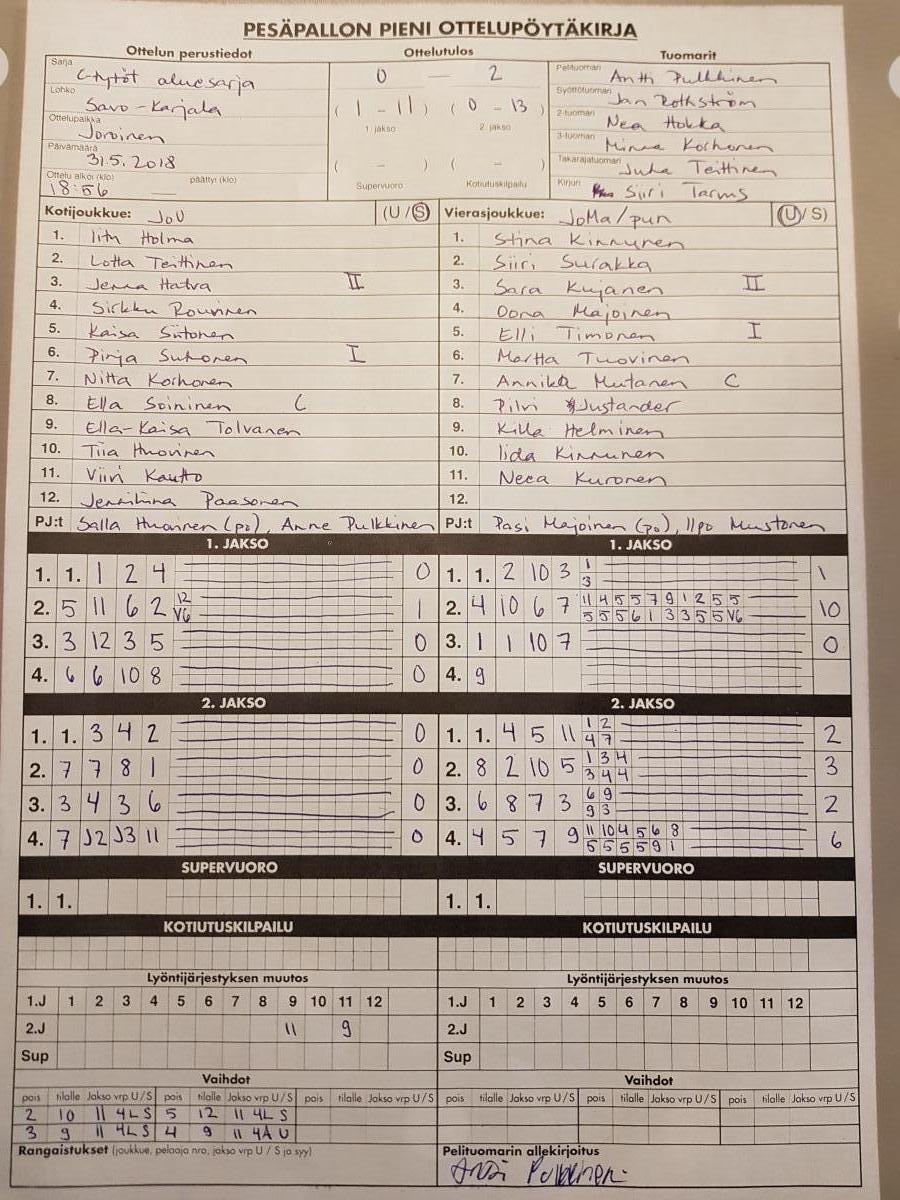 PESÄPALLON PIENI OTTELUPÖYTÄKIRJA
Ottelun perustiedot
Sarja C-tytöt aluesarja
Lohko Savo-Karjala
Ottelupaikka Joroinen
Päivämäärä 31.5.2018
Ottelu alkoi (klo) päättyi (klo)
18:56 —
Ottelutulos
0 — 2
(1 - 11) (0 - 13)
1. jakso 2. jakso
( - ) ( - )
Supervuoro Kotiutuskilpailu
Tuomarit
Pelituomari Antti Pulkkinen
Syöttötuomari Jan Rothström
2-tuomari Nea Hokka
3-tuomari Minna Korhonen
Takarajatuomari Juha Teittinen
Kirjuri Siiri Tarms
Kotijoukkue: JoU (U/S)
1. Iitu Holma
2. Lotta Teittinen
3. Jenna Hatva II
4. Sirkku Rouvinen
5. Kaisa Siitonen
6. Pinja Suhonen I
7. Nitta Korhonen
8. Ella Soininen C
9. Ella-Kaisa Tolvanen
10. Tiia Huovinen
11. Viivi Kautto
12. Jenniina Paasonen
PJ:t Salla Huovinen (po), Anne Pulkkinen
Vierasjoukkue: JoMa/pun (U/S)
1. Stina Kinnunen
2. Siiri Surakka
3. Sara Kujanen II
4. Oona Majoinen
5. Elli Timonen I
6. Martta Tuovinen
7. Annika Mutanen C
8. Pilvi Justander
9. Killa Helminen
10. Iida Kinnunen
11. Neea Kuronen
12.
PJ:t Pasi Majoinen (po), Ilpo Mustonen
1. JAKSO
1. 1. 1 2 4 0
2. 5 11 6 2 12 V6 1
3. 3 12 3 5 0
4. 6 6 10 8 0
1. JAKSO
1. 1. 2 10 3 1 3 1
2. 4 10 6 7 11 4 5 5 7 9 1 2 5 5 10
5 5 5 6 1 3 3 5 5 V6
3. 1 1 10 7 0
4. 9
2. JAKSO
1. 1. 3 4 2 0
2. 7 7 8 1 0
3. 3 4 3 6 0
4. 7 J2 J3 11 0
2. JAKSO
1. 1. 4 5 11 1 2 2
4 7
2. 8 2 10 5 1 3 4 3
3 4 4
3. 6 8 7 3 6 9 2
9 3
4. 4 5 7 9 11 10 4 5 6 8 6
5 5 5 5 9 1
SUPERVUORO
1. 1.
SUPERVUORO
1. 1.
KOTIUTUSKILPAILU
KOTIUTUSKILPAILU
Lyöntijärjestyksen muutos
1.J 1 2 3 4 5 6 7 8 9 10 11 12
2.J 11 9
Sup
Lyöntijärjestyksen muutos
1.J 1 2 3 4 5 6 7 8 9 10 11 12
2.J
Sup
Vaihdot
pois tilalle Jakso vrp U/S pois tilalle Jakso vrp U/S pois tilalle Jakso vrp U/S
2 10 II 4L S 5 12 II 4L S
3 9 II 4L S 4 9 II 4A U
Vaihdot
pois tilalle Jakso vrp U/S pois tilalle Jakso vrp U/S pois tilalle Jakso vrp U/S
Rangaistukset (joukkue, pelaaja nro, jakso vrp U / S ja syy)
Pelituomarin allekirjoitus